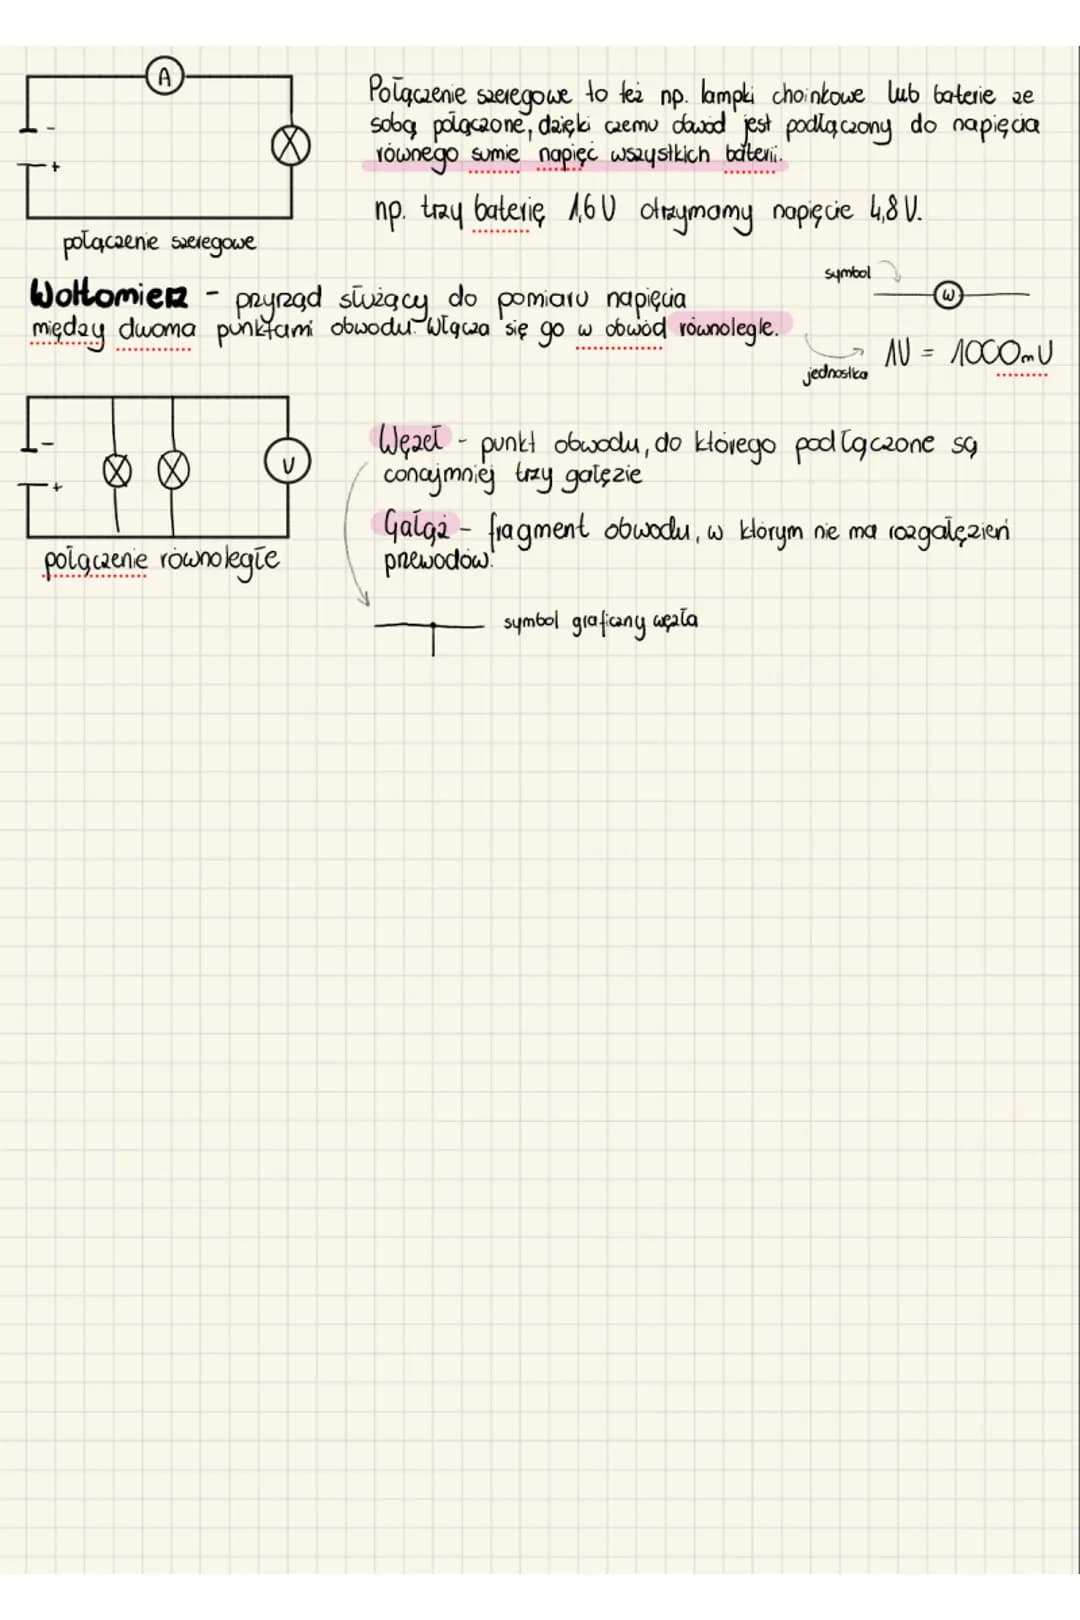 A
Połączenie szeregowe to też np. lampki choinkowe lub baterie ze
sobą połączone, dzięki czemu obwód jest podłączony do napięcia
równego sumie napięć wszystkich baterii.
- 
+
np. trzy baterię 1,6V otrzymamy napięcie 4,8V.
połączenie szeregowe
symbol
Woltomierz - przyrząd służący do pomiaru napięcia
W
między dwoma punktami obwodu. Włącza się go w obwód równolegle.
1V = 1000mV
jednostka
-
+
V
Węzeł - punkt obwodu, do którego podłączone są
conajmniej trzy gałęzie
Gałąź - fragment obwodu, w którym nie ma rozgałęzień
przewodów.
połączenie równoległe
symbol graficzny węzła